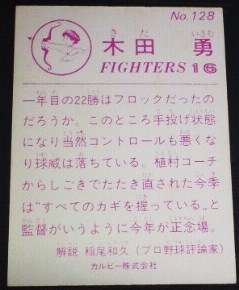 No.128
木田 勇
FIGHTERS 16
一年目の22勝はフロックだったの
だろうか。このところ手投げ状態
になり当然コントロールも悪くな
り球威は落ちている。植村コーチ
からしごきでたたき直された今季
は“すべてのカギを握っている”と
監督がいうように今年が正念場。
解説 稲尾和久(プロ野球評論家)
カルビー株式会社